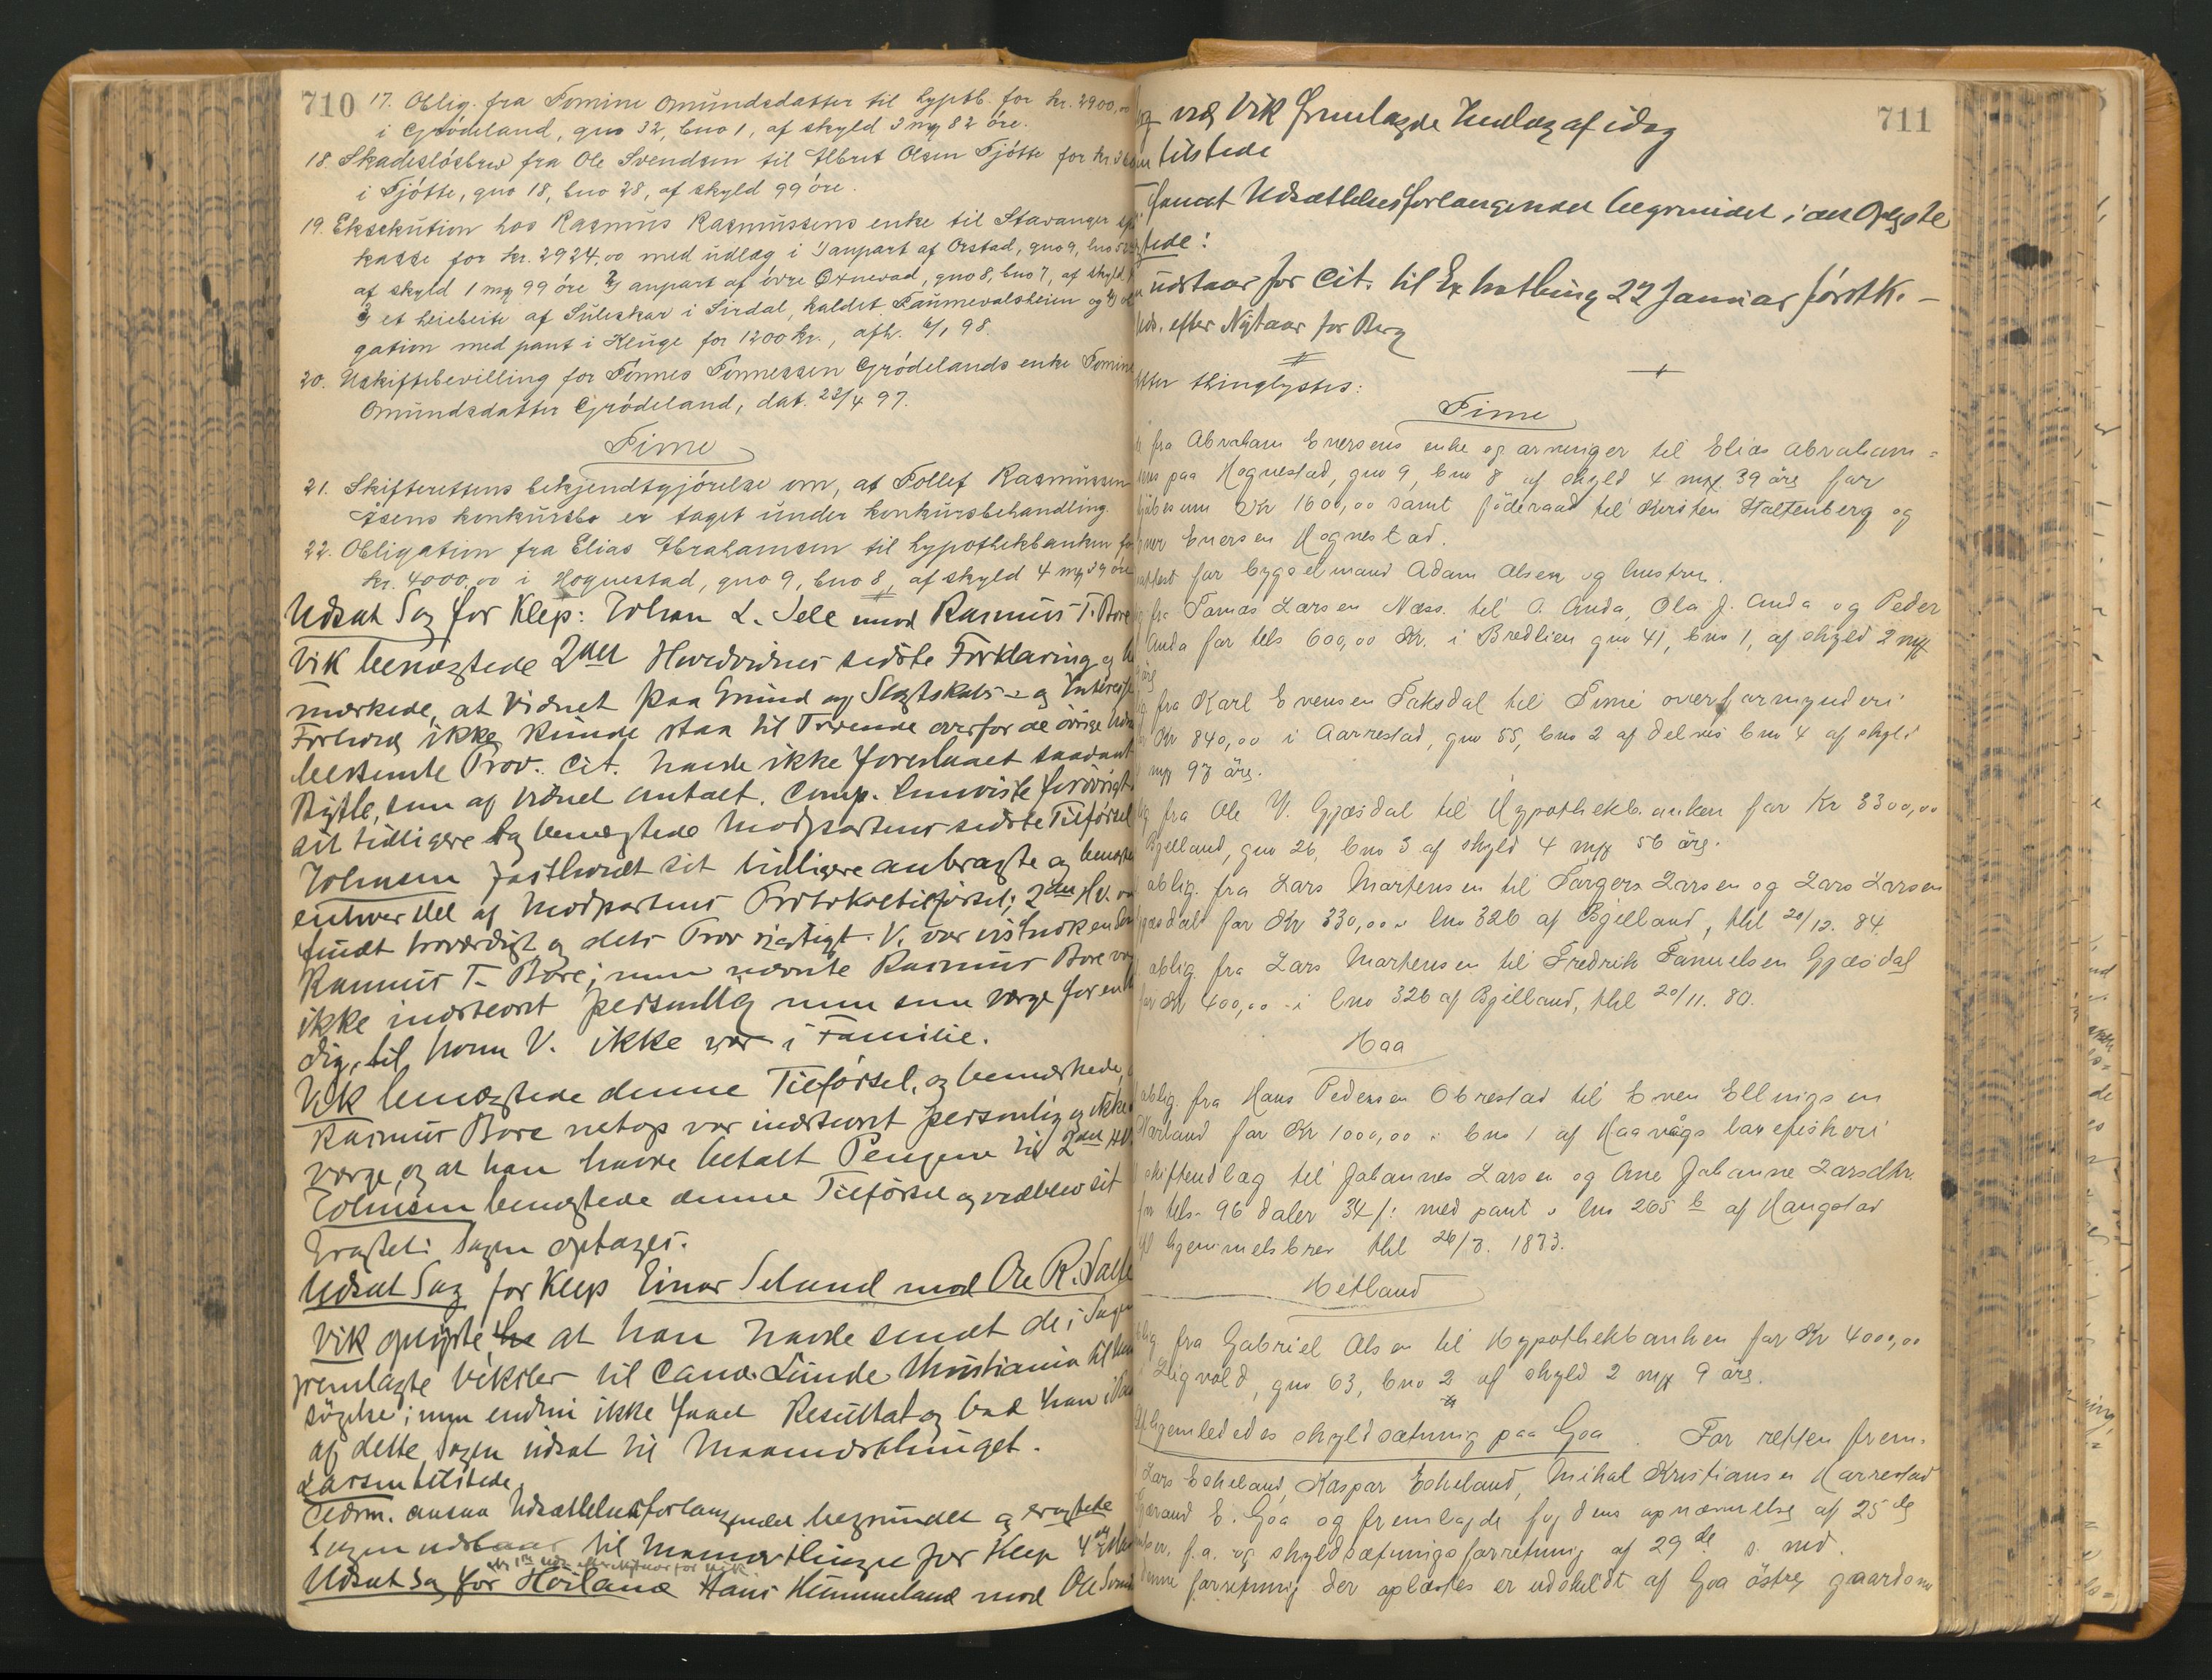 710
17. Oblig. fra Tomine Omundsdatter til hyptb. for kr. 2900,00
i Grödeland, gno 32, bno 1, af skyld 3 mg 82 öre.
18. Skadeslösbrev fra Ole Svendsen til Albret Olsen Tjötte for kr.
i Tjötte, gno 18, bno 28, af skyld 99 öre.
19. Eksekution hos Rasmus Rasmussens enke til Stavanger
kasse for kr. 2924.00 med udlæg i 1 anpart af Orstad, gno 9, bno
af skyld 1 mg 99 öre 2) anpart af övre Öxnevad, gno 8, bno 7, af skyld
3) et heiebeite af Suleskar i Sirdal, kaldet og 4)
gation med pant i Kluge for 1200 kr., afh. 6/1 98.
20. Uskiftebevilling for Tönnes Tönnessen Grödelands enke Tomine
Omundsdatter Grödeland, dat. 22/4 97.
Time
21. Skifterettens bekjendtgjörelse om, at Tollef Rasmussen
Åsens konkursbo er taget under konkursbehandling.
22. Obligation fra Elias Abrahamsen til hypothekbanken for
kr. 4000,00 i Hognestad, gno 9, bno 8, af skyld 4 mg 39 öre
Udsat Sag for Klep: Johan L. Sele mod Rasmus T. Bore
Vik benægtede 2det Hovedvidnes sidste Forklaring og
mærkede, at Vidnet paa Grund af Slægtskabs- og Interesse
Forhold ikke kunde staa til Troende overfor de övrige
bestemte Prov. Cit. havde ikke foreslaaet saadant
Bytte, som af Vidnet omtalt. Comp. henviste forövrigt
sit tidligere og benægtede Modpartens sidste Tilförsel
Tolmsen fastholdt sit tidligere anbragte og benægtede
enhver Del af Modpartens Protokoltilförsel; 2det Hv. var
fuldt troværdigt og dets Prov rigtigt. V. var vistnok en
Rasmus T. Bore; men nævnte Rasmus Bore var
ikke indstevnt personlig men som værge for en
dig, til hvem V. ikke var i Familie.
Vik benægtede denne Tilförsel, og bemærkede,
Rasmus Bore netop var indstevnt personlig og ikke
værge, og at han havde betalt Pengene til 2det Hv.
Tolmsen benægtede denne Tilförsel og vedblev sit
Eragtet: Sagen optages.
Udsat Sag for Klep Einar Seland mod Ole R. Salte
Vik oplyste at han havde sendt de i Sagen
fremlagte Veksler til Cand. Lunde Kristiania til
sögelse; men endnu ikke faaet Resultat og bad han
af dette Sagen udsat til Maanedsthinget.
Larsen tilstede.
Adm. ansaa Udsættelsesforlangendet begrundet og eragtede
Sagen udstaar til Maanedsthinget for Klep
Udsat Sag for Höiland Hans Hummeland mod Ole
711
og ved Vik fremlagde Indlæg af idag
tilstede
fandt Udsættelsesforlangendet begrundet i det Oplyste
tede:
udstaar for Cit. til Ex trathing 22 Januar förstk. –
efter Nytaar for Berg
Efter thinglystes:
Time
fra Abraham Eversens enke og arvinger til Elias Abraham=
sens paa Hognestad, gno 9, bno 8 af skyld 4 mg 39 öre for
kjöbesum Kr 1600,00 samt föderaad til Kirsten Haltenberg og
Eversen Hognestad.
attest for bygselmand Adam Olsen og hustru.
fra Tomas Larsen Næss til O. Anda, Ola J. Anda og Peder
Anda for tels 600,00 Kr. i Bredlien gno 41, bno 1, af skyld 2 mg
öre
fra Karl Evensen Taksdal til Time overformynderi
Kr 840,00 i Aarrestad, gno 55, bno 2 af delvis bno 4 af skyld
mg 97 öre.
fra Ole V. Gjæsdal til Hypothekbanken for Kr 3300,00
Bjelland, gno 26, bno 3 af skyld 4 mg 56 öre.
oblig. fra Lars Martensen til Torgers Larsen og Lars Larsen
Gjæsdal for Kr 330,00 i lno 326 af Bjelland, thl 20/12. 84.
oblig. fra Lars Martensen til Fredrik Samuelsen Gjæsdal
for Kr 400,00 i lno 326 af Bjelland, thl 20/11. 80.
Haa
oblig. fra Hans Pedersen Obrestad til Even Ellingsen
Nærland for Kr 1000,00 i bno 1 af Haavågs laxefiskeri
skifteudlæg til Johannes Larsen og Ane Johanne Larsdtr.
for tels. 96 daler 34 f: med pant i lno 265 b af Haugstad
hjemmelsbrev thl 26/3. 1873.
Hetland
oblig fra Gabriel Olsen til Hypothekbanken for Kr 4000,00
, gno 63, bno 2 af skyld 2 mg 9 öre.
Afhjemledes skyldsætning paa Goa . For retten frem-
Lars Eskeland, Kaspar Eskeland, Mikal Kristiansen Harrestad
E. Goa og fremlagde fogdens opnævnelse af 25de
f. a. og skyldsætningsforretning af 29de s. md.
denne forretning der oplæstes er udskildt af Goa östre gaardsno